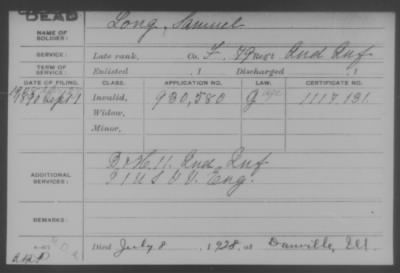 DEAD
NAME OF SOLDIER: Long, Samuel
SERVICE: Late rank, Co. F, 79 REG'T Ind Inf
TERM OF SERVICE: Enlisted , 1 Discharged , 1
DATE OF FILING. CLASS. APPLICATION NO. LAW. CERTIFICATE NO.
1890 Sept 1 Invalid, 930,580 G 1117.131
Widow,
Minor,
ADDITIONAL SERVICES: D & H. 11. Ind Inf
1 U S V V. Eng.
REMARKS:
Died July 8, 1928, at Danville, Ill